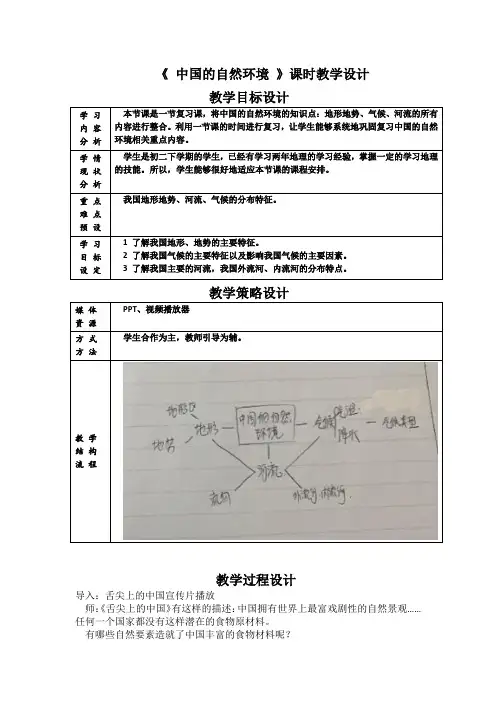 《 中国的自然环境 》课时教学设计
教学目标设计
学 习
内 容
分 析
本节课是一节复习课，将中国的自然环境的知识点：地形地势、气候、河流的所有
内容进行整合。利用一节课的时间进行复习，让学生能够系统地巩固复习中国的自然
环境相关重点内容。
学 情
现 状
分 析
学生是初二下学期的学生，已经有学习两年地理的学习经验，掌握一定的学习地理
的技能。所以，学生能够很好地适应本节课的课程安排。
重 点
难 点
预 设
我国地形地势、河流、气候的分布特征。
学 习
目 标
设 定
1 了解我国地形、地势的主要特征。
2 了解我国气候的主要特征以及影响我国气候的主要因素。
3 了解我国主要的河流，我国外流河、内流河的分布特点。
教学策略设计
媒 体
资 源
PPT、视频播放器
方 式
方 法
学生合作为主，教师引导为辅。
教 学
结 构
流 程
地形区
地形
地势
中国的自然
环境
气候
气温
降水
气候类型
河流
外流河、内流河
教学过程设计
导入：舌尖上的中国宣传片播放
师：《舌尖上的中国》有这样的描述：中国拥有世界上最富戏剧性的自然景观……
任何一个国家都没有这样潜在的食物原材料。
有哪些自然要素造就了中国丰富的食物材料呢？